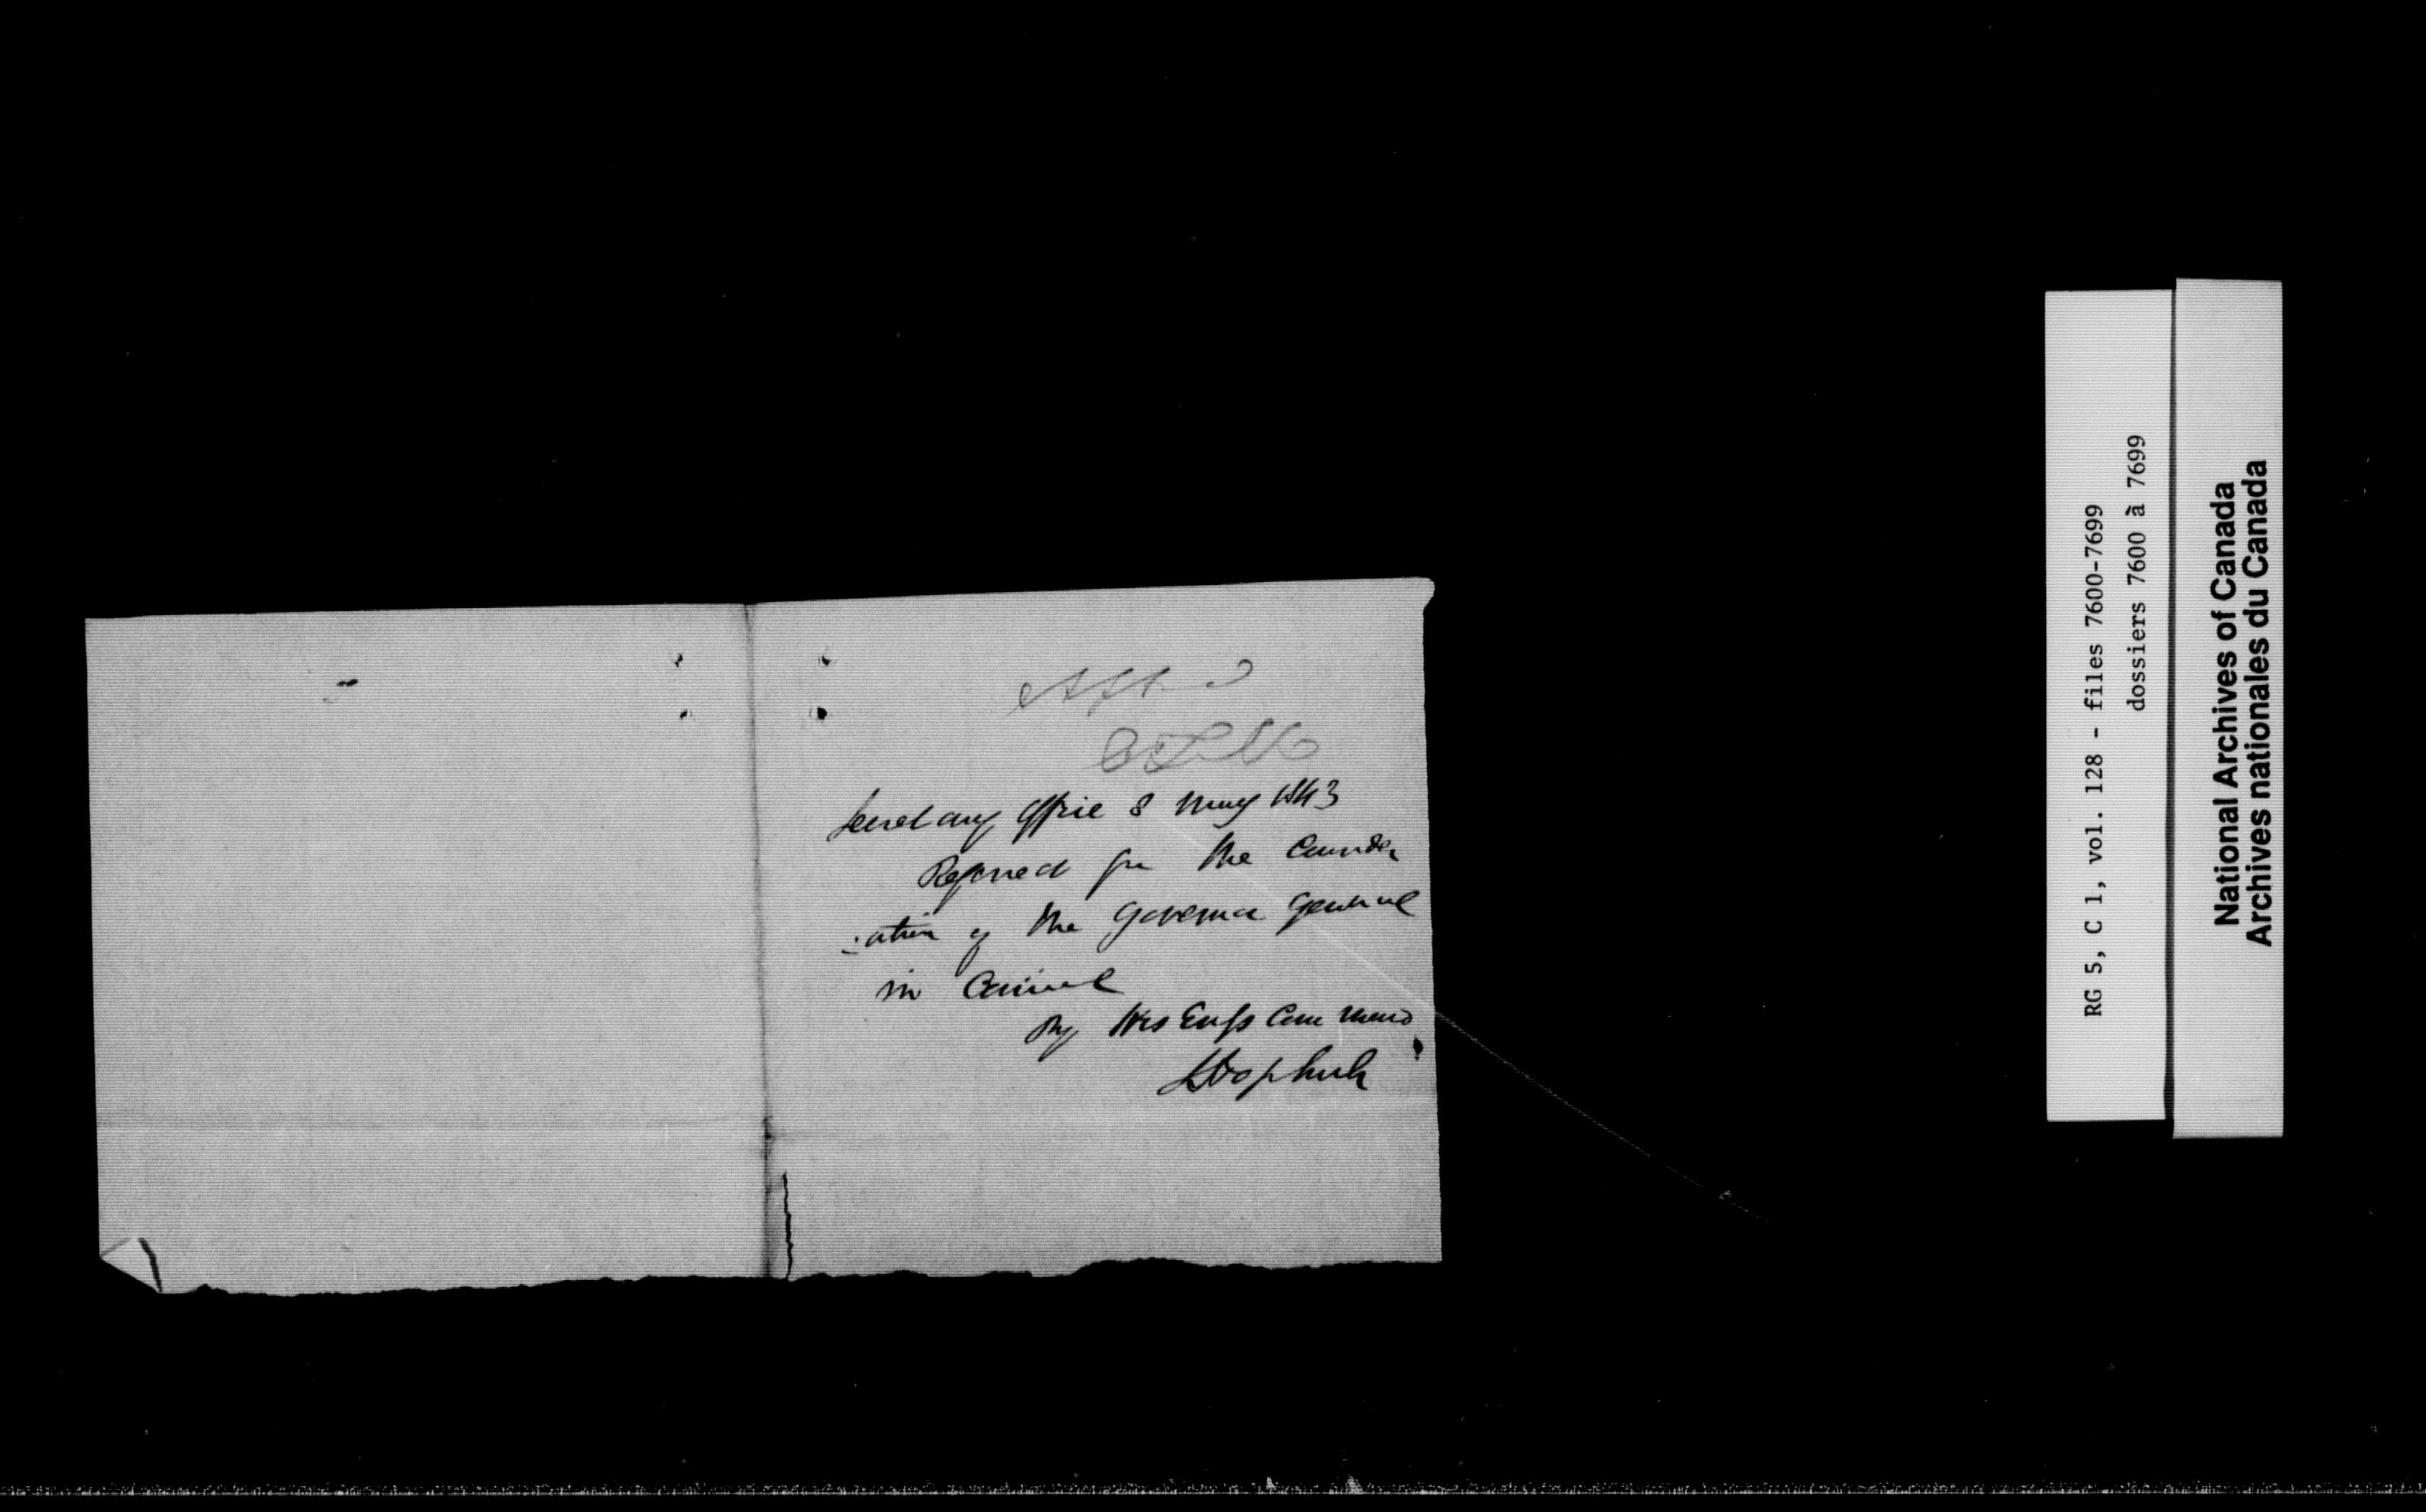 Secretary Office 8 May 1843
Referred for the Consider
-ation of the Governor General
in Council
By His Exys Command
RG 5, C 1, vol. 128 - files 7600-7699
dossiers 7600 à 7699
National Archives of Canada
Archives nationales du Canada